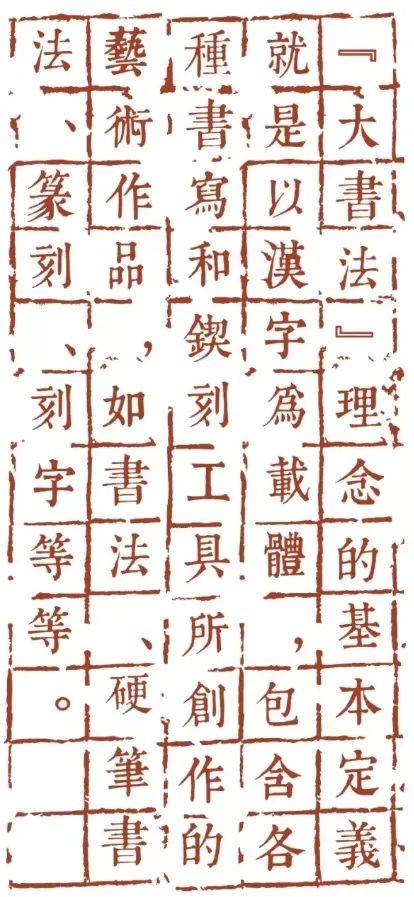 『大書法』理念的基本定義
就是以漢字爲載體，包含各
種書寫和鍥刻工具所創作的
藝術作品，如書法、硬筆書
法、篆刻、刻字等等。